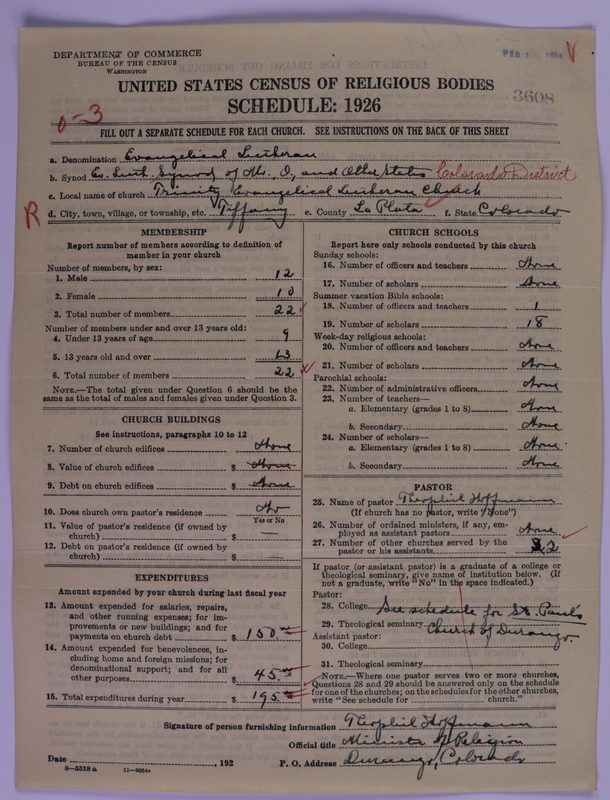 DEPARTMENT OF COMMERCE
BUREAU OF THE CENSUS
WASHINGTON
FEB 1
V
UNITED STATES CENSUS OF RELIGIOUS BODIES
SCHEDULE: 1926
3608
0-3
FILL OUT A SEPARATE SCHEDULE FOR EACH CHURCH. SEE INSTRUCTIONS ON THE BACK OF THIS SHEET
a. Denomination Evangelical Lutheran
b. Synod Ev. Luth. Synod of Mo., O., and other States Colorado District
c. Local name of church Trinity Evangelical Lutheran Church
R d. City, town, village, or township, etc. Tiffany e. County La Plata f. State Colorado
MEMBERSHIP
Report number of members according to definition of
member in your church
Number of members, by sex:
1. Male 12
2. Female 10
3. Total number of members 22
Number of members under and over 13 years old:
4. Under 13 years of age 9
5. 13 years old and over 13
6. Total number of members 22
NOTE.—The total given under Question 6 should be the
same as the total of males and females given under Question 3.
CHURCH BUILDINGS
See instructions, paragraphs 10 to 12
7. Number of church edifices None
8. Value of church edifices $ None
9. Debt on church edifices $ None
10. Does church own pastor's residence? No
Yes or No
11. Value of pastor's residence (if owned by
church) $ —
12. Debt on pastor's residence (if owned by
church) $
EXPENDITURES
Amount expended by your church during last fiscal year
13. Amount expended for salaries, repairs,
and other running expenses; for im-
provements or new buildings; and for
payments on church debt $ 150.
14. Amount expended for benevolences, in-
cluding home and foreign missions; for
denominational support; and for all
other purposes $ 45.
15. Total expenditures during year $ 195.
CHURCH SCHOOLS
Report here only schools conducted by this church
Sunday schools:
16. Number of officers and teachers None
17. Number of scholars None
Summer vacation Bible schools:
18. Number of officers and teachers 1
19. Number of scholars 18
Week-day religious schools:
20. Number of officers and teachers None
21. Number of scholars None
Parochial schools:
22. Number of administrative officers None
23. Number of teachers—
a. Elementary (grades 1 to 8) None
b. Secondary None
24. Number of scholars—
a. Elementary (grades 1 to 8) None
b. Secondary None
PASTOR
25. Name of pastor Theophil Hoffmann
(If church has no pastor, write "None")
26. Number of ordained ministers, if any, em-
ployed as assistant pastors None
27. Number of other churches served by the
pastor or his assistants 2
If pastor (or assistant pastor) is a graduate of a college or
theological seminary, give name of institution below. (If
not a graduate, write "No" in the space indicated.)
Pastor:
28. College See schedule for St. Paul's
29. Theological seminary Church of Durango.
Assistant pastor:
30. College
31. Theological seminary
NOTE.—Where one pastor serves two or more churches,
Questions 28 and 29 should be answered only on the schedule
for one of the churches; on the schedules for the other churches,
write "See schedule for church."
Signature of person furnishing information Theophil Hoffmann
Official title Minister of Religion
Date , 192 P. O. Address Durango, Colorado
8-5318a 11-9634a